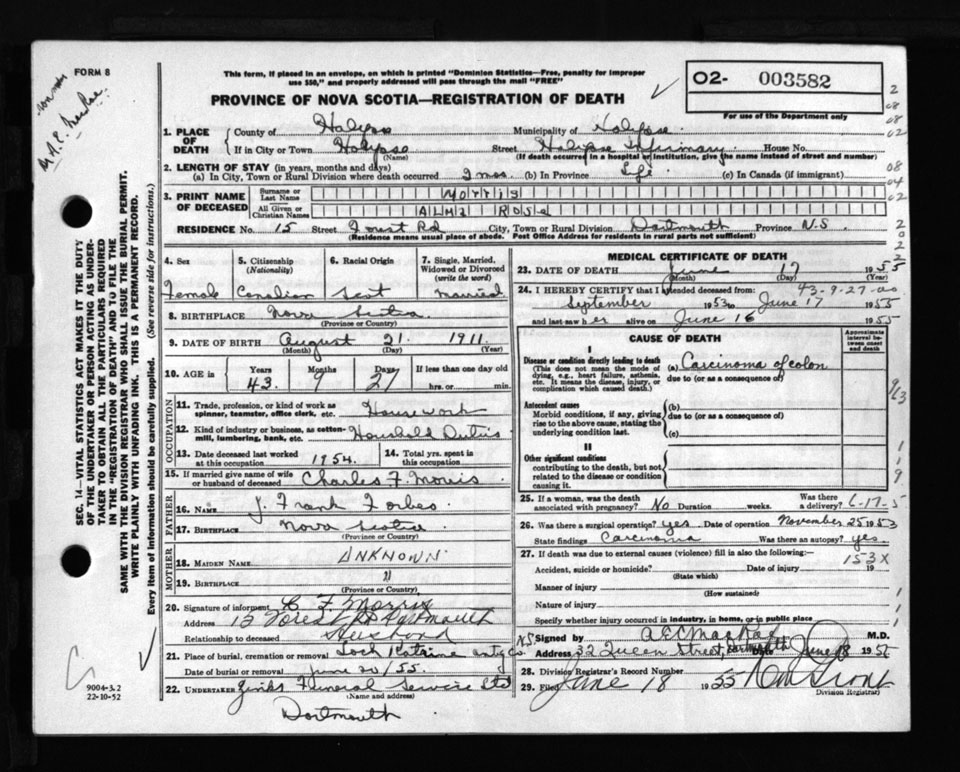 FORM 8
This form, if placed in an envelope, on which is printed "Dominion Statistics—Free, penalty for improper
use $50," and properly addressed will pass through the mail "FREE"
02- 003582
For use of the Department only
PROVINCE OF NOVA SCOTIA—REGISTRATION OF DEATH
1. PLACE OF DEATH
County of Halifax Municipality of Halifax
If in City or Town Halifax Street Halifax Infirmary House No.
(Name) (If death occurred in a hospital or institution, give the name instead of street and number)
2. LENGTH OF STAY (in years, months and days)
(a) In City, Town or Rural Division where death occurred 2 mos. (b) In Province Life (c) In Canada (if immigrant)
3. PRINT NAME OF DECEASED
Surname or Last Name MORRIS
All Given or Christian Names ALMA ROSE
RESIDENCE No. 15 Street Forest Rd City, Town or Rural Division Dartmouth Province N.S.
(Residence means usual place of abode. Post Office Address for residents in rural parts not sufficient)
4. Sex
Female
5. Citizenship (Nationality)
Canadian
6. Racial Origin
Scot
7. Single, Married, Widowed or Divorced (write the word)
Married
8. BIRTHPLACE Nova Scotia
(Province or Country)
9. DATE OF BIRTH August 21 1911
(Month) (Day) (Year)
10. AGE in Years Months Days If less than one day
43 9 27 hrs. or min.
OCCUPATION
11. Trade, profession, or kind of work as spinner, teamster, office clerk, etc. Housework
12. Kind of industry or business, as cotton-mill, lumbering, bank, etc. Household Duties
13. Date deceased last worked at this occupation 1954
14. Total yrs. spent in this occupation
15. If married give name of wife or husband of deceased Charles F. Morris
FATHER
16. Name J. Frank Forbes
17. Birthplace Nova Scotia
(Province or Country)
MOTHER
18. Maiden Name UNKNOWN
19. Birthplace "
(Province or Country)
20. Signature of informant C F Morris
Address 15 Forest Rd Dartmouth
Relationship to deceased Husband
21. Place of burial, cremation or removal Loch Katrine Co. NS
Date of burial or removal June 20/55
22. UNDERTAKER Zinks Funeral Service Ltd
(Name and address)
Dartmouth
MEDICAL CERTIFICATE OF DEATH
23. DATE OF DEATH June 17 1955
(Month) (Day) (Year)
24. I HEREBY CERTIFY that I attended deceased from: 43-9-27
September 1953 to June 17 1955
and last saw her alive on June 16 1955
CAUSE OF DEATH
Approximate interval between onset and death
I
Disease or condition directly leading to death
(This does not mean the mode of dying, e.g., heart failure, asthenia, etc. It means the disease, injury, or complication which caused death.)
(a) Carcinoma of colon
due to (or as a consequence of)
Antecedent causes
Morbid conditions, if any, giving rise to the above cause, stating the underlying condition last.
(b)
due to (or as a consequence of)
(c)
II
Other significant conditions
contributing to the death, but not related to the disease or condition causing it.
25. If a woman, was the death associated with pregnancy? No Duration weeks. Was there a delivery? 6-17-5
26. Was there a surgical operation? yes Date of operation November 25 1953
State findings Carcinoma Was there an autopsy? yes.
27. If death was due to external causes (violence) fill in also the following:—
153X
Accident, suicide or homicide? Date of injury 19
(State which)
Manner of injury
(How sustained)
Nature of injury
Specify whether injury occurred in industry, in home, or in public place
Signed by A E C MacKay M.D.
Address 32 Queen Street, Dartmouth June 18 1955
28. Division Registrar's Record Number
29. Filed June 18 1955
Division Registrar
SEC. 14—VITAL STATISTICS ACT MAKES IT THE DUTY
OF THE UNDERTAKER OR PERSON ACTING AS UNDER-
TAKER TO OBTAIN ALL THE PARTICULARS REQUIRED
IN THE "REGISTRATION OF DEATH" AND TO FILE THE
SAME WITH THE DIVISION REGISTRAR WHO SHALL ISSUE THE BURIAL PERMIT.
WRITE PLAINLY WITH UNFADING INK. THIS IS A PERMANENT RECORD.
Every item of information should be carefully supplied. (See reverse side for instructions.)
9004-3.2
22-10-52